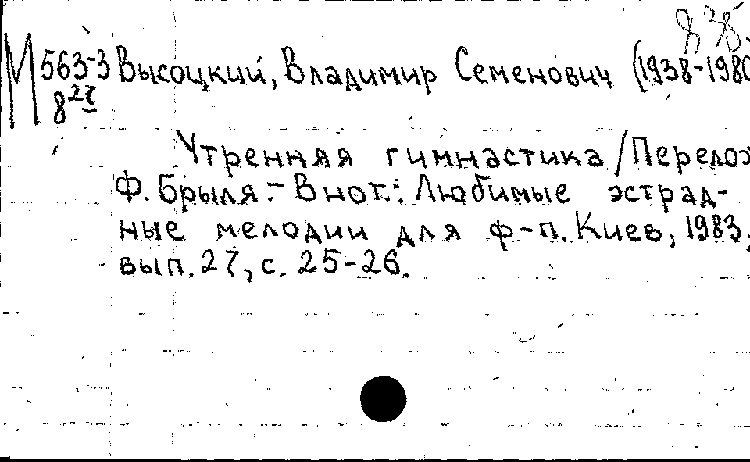 М 563-3 Высоцкий, Владимир Семенович (1938-1980
8 27
Утренняя гимнастика / Перелож
Ф. Брыля. - В нот.: Любимые эстрад-
ные мелодии для ф-п. Киев, 1983,
вып. 27, с. 25-26.